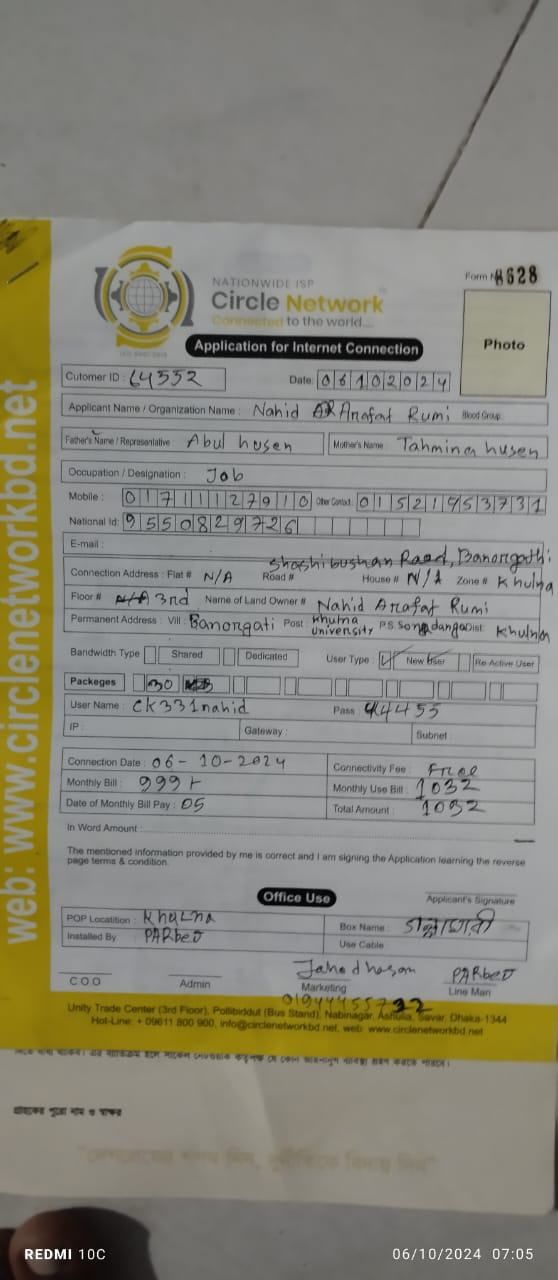 web: www.circlenetworkbd.net
Form N 8628
NATIONWIDE ISP
Circle Network
Connected to the world...
ISO 9001:2015
Application for Internet Connection
Photo
Cutomer ID : 64552
Date: 06102024
Applicant Name / Organization Name : Nahid Arafat Rumi Blood Group
Father's Name / Representative : Abul husen Mother's Name : Tahmina husen
Occupation / Designation : Job
Mobile : 01711127910 Other Contact:
National Id: 9550829726
E-mail :
Shashibushan Raod, Banorgathi
Connection Address : Flat # N/A Road # House # N/A Zone # Khulna
Floor # 3rd Name of Land Owner # Nahid Arafat Rumi
Permanent Address : Vill : Banorgati Post : Khulna university P.S Sonadanga Dist : Khulna
Bandwidth Type Shared Dedicated User Type : New User Re Active User
Packeges 30 MB
User Name : CK331nahid Pass : 44455
IP : Gateway : Subnet :
Connection Date : 06-10-2024 Connectivity Fee : Free
Monthly Bill : 999 Monthly Use Bill : 1032
Date of Monthly Bill Pay : 05 Total Amount : 1032
In Word Amount :
The mentioned information provided by me is correct and I am signing the Application learning the reverse
page terms & condition.
Office Use
Applicant's Signature
POP Locatition : Khulna Box Name :
Installed By PARbeJ Use Cable
Jahed hasan PARbeJ
C.O.O Admin Marketing Line Man
Unity Trade Center (3rd Floor), Pollibiddut (Bus Stand), Nabinagar, Ashulia, Savar, Dhaka-1344
Hot-Line: + 09611 800 900, info@circlenetworkbd.net, web: www.circlenetworkbd.net
গ্রাহকের পুরো নাম ও স্বাক্ষর
REDMI 10C
06/10/2024 07:05